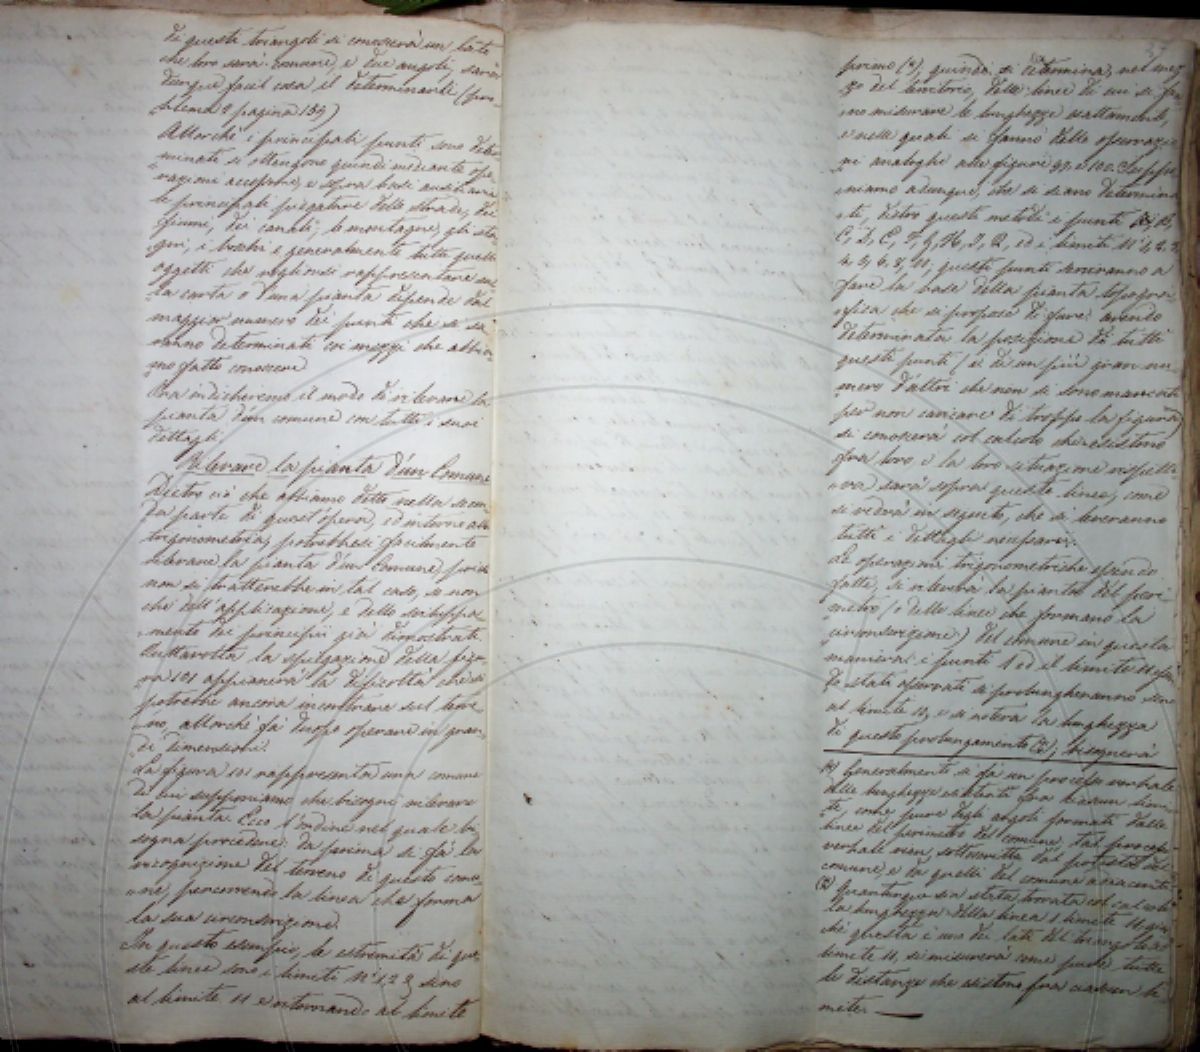 di questi triangoli si conoscerà un lato
che loro sarà comune, e due angoli, sarà
dunque facil cosa il determinarli (pro-
blema 2 pagina 159)
Allorchè i principali punti sono deter-
minati si ottengono quindi mediante ope-
razioni accessorie, e sopra basi ausiliarie
le principali piegature delle strade, dei
fiumi, dei canali; le montagne, gli sta-
gni, i boschi e generalmente tutti quelli
oggetti che voglionsi rappresentare sul-
la carta o d'una pianta dipende dal
maggior numero dei punti che si sa-
ranno determinati coi mezzi che abbia-
mo fatto conoscere
Ora indicheremo il modo di rilevare la
pianta d'un comune con tutti i suoi
dettagli
Rilevare la pianta d'un Comune
Dietro ciò che abbiamo detto nella secon-
da parte di quest'opera, ed intorno alla
trigonometria, potrebbesi facilmente
rilevare la pianta d'un Comune, poichè
non si tratterebbe in tal caso, se non
che dell'applicazione, e dello sviluppa-
mento dei principii già dimostrati.
Tuttavolta la spiegazione della figu-
ra 101 appianerà la difficoltà che si
potrebbe ancora incontrare sul terre-
no, allorchè fa duopo operare in gran-
di dimensioni.
La figura 101 rappresenta una comune
di cui supponiamo che bisogni rilevare
la pianta. Ecco l'ordine nel quale bi-
sogna procedere: da prima si fa la
ricognizione del terreno di questo comu-
ne, percorrendo la linea che forma
la sua circonscrizione.
In questo esempio, le estremità di que-
ste linee sono i limiti N° 1 2 3, sino
al limite 11 e ritornando al limite
primo (1), quindi, si determina, nel mez-
zo del territorio, delle linee di cui si fan-
no misurare le lunghezze esattamente,
e nelle quali si fanno delle operazio-
ni analoghe alle figure 99, e 100. Suppo-
niamo adunque, che si siano determina-
te, dietro questi metodi i punti
C, D, E, F, G, H, I, ed i limiti N° 1, 2, 3,
4, 5, 6, 8, 11; questi punti serviranno a
fare la base della pianta topogra-
fica che si propose di fare: avendo
determinata la posizione di tutti
questi punti (e di un più gran nu-
mero d'altri che non si sono marcati
per non caricare di troppo la figura)
si conoscerà col calcolo che esistono
fra loro, e la loro situazione rispetti-
va sarà sopra queste linee, come
si vedrà in seguito, che si leveranno
tutti i dettagli necessari.
Le operazioni trigonometriche essendo
fatte, si rileverà la pianta del peri-
metro (o delle linee che formano la
circonscrizione) del comune in questa
maniera: i punti 1 ed il limite 11
stati operati si prolungheranno sino
al limite e si noterà la lunghezza
di questo prolungamento (2), bisognerà
(1) Generalmente si fa un processo verbale
delle lunghezze esistenti fra ciascun limi-
te, come pure degli angoli formati dalle
linee del perimetro del comune, tal processo
verbale vien sottoscritto dal podestà del
comune, e da quelli dei comuni adiacenti
(2) Quantunque sia stata trovata col calcolo
la lunghezza della linea 1 limite 11
chè questa è uno dei lati del triangolo
limite 11, si misurerà come pure tutte
le distanze che esistono fra ciascun li-
mite.